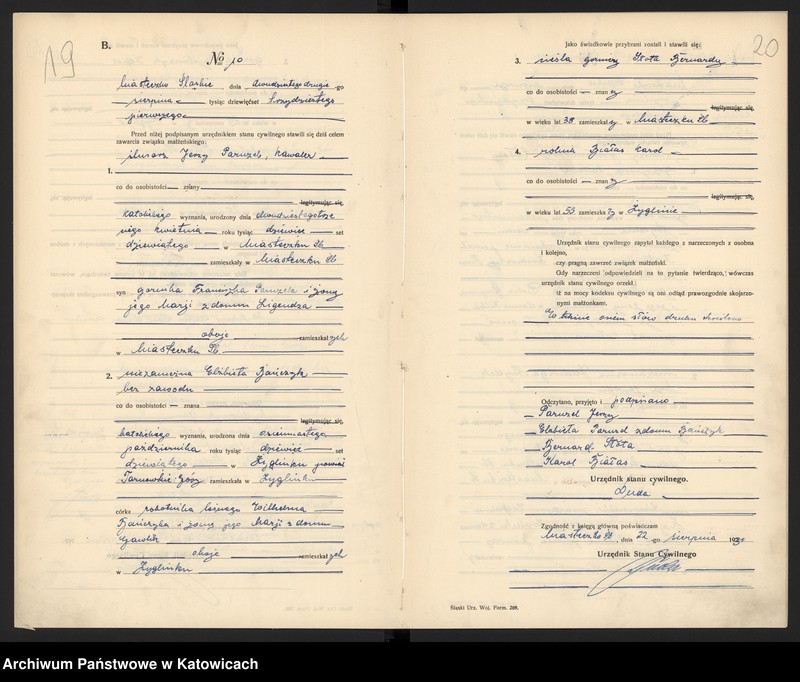 19
B.
№ 10
Miasteczko Śląskie, dnia dwudziestego drugiego
sierpnia tysiąc dziewięćset trzydziestego
pierwszego
Przed niżej podpisanym urzędnikiem stanu cywilnego stawili się dziś celem
zawarcia związku małżeńskiego:
1. ślusarz Jerzy Paruzel, kawaler
co do osobistości — znany
legitymując się
katolickiego wyznania, urodzony dnia dwudziestego
kwietnia roku tysiąc dziewięć set
dziewiątego w Miasteczku Śl.
zamieszkały w Miasteczku Śl.
syn górnika Franciszka Paruzela i żony
jego Marji z domu Ligendza
oboje zamieszkałych
w Miasteczku Śl.
2. niezamężna Elżbieta Bańczyk
bez zawodu
co do osobistości — znana
legitymując się
katolickiego wyznania, urodzona dnia osiemnastego
października roku tysiąc dziewięć set
dziewiątego w Żyglinku powiat
Tarnowskie Góry zamieszkała w Żyglinku
córka robotnika leśnego Wilhelma
Bańczyka i żony jego Marji z domu
oboje zamieszkałych
w Żyglinku
20
Jako świadkowie przybrani zostali i stawili się:
3. cieśla górniczy Skota Bernard
co do osobistości — znany
legitymując się
w wieku lat 38 zamieszkały w Miasteczku Śl.
4. rolnik Białas Karol
co do osobistości — znany
legitymując się
w wieku lat 53 zamieszkały w Żyglinie
Urzędnik stanu cywilnego zapytał każdego z narzeczonych z osobna
i kolejno,
czy pragną zawrzeć związek małżeński.
Ody narzeczeni odpowiedzieli na to pytanie twierdząco, wówczas
urzędnik stanu cywilnego orzekł:
iż na mocy kodeksu cywilnego są oni odtąd prawozgodnie skojarzo-
nymi małżonkami.
osiem słów druku skreślono
Odczytano, przyjęto i podpisano
Paruzel Jerzy
Elżbieta Paruzel z domu Bańczyk
Bernard Skota
Karol Białas
Urzędnik stanu cywilnego.
Duda
Zgodność z księgą główną poświadczam
Miasteczko Śl., dnia 22 -go sierpnia 1931
Urzędnik Stanu Cywilnego
Duda
Śląski Urz. Woj. Form. 269.
Archiwum Państwowe w Katowicach